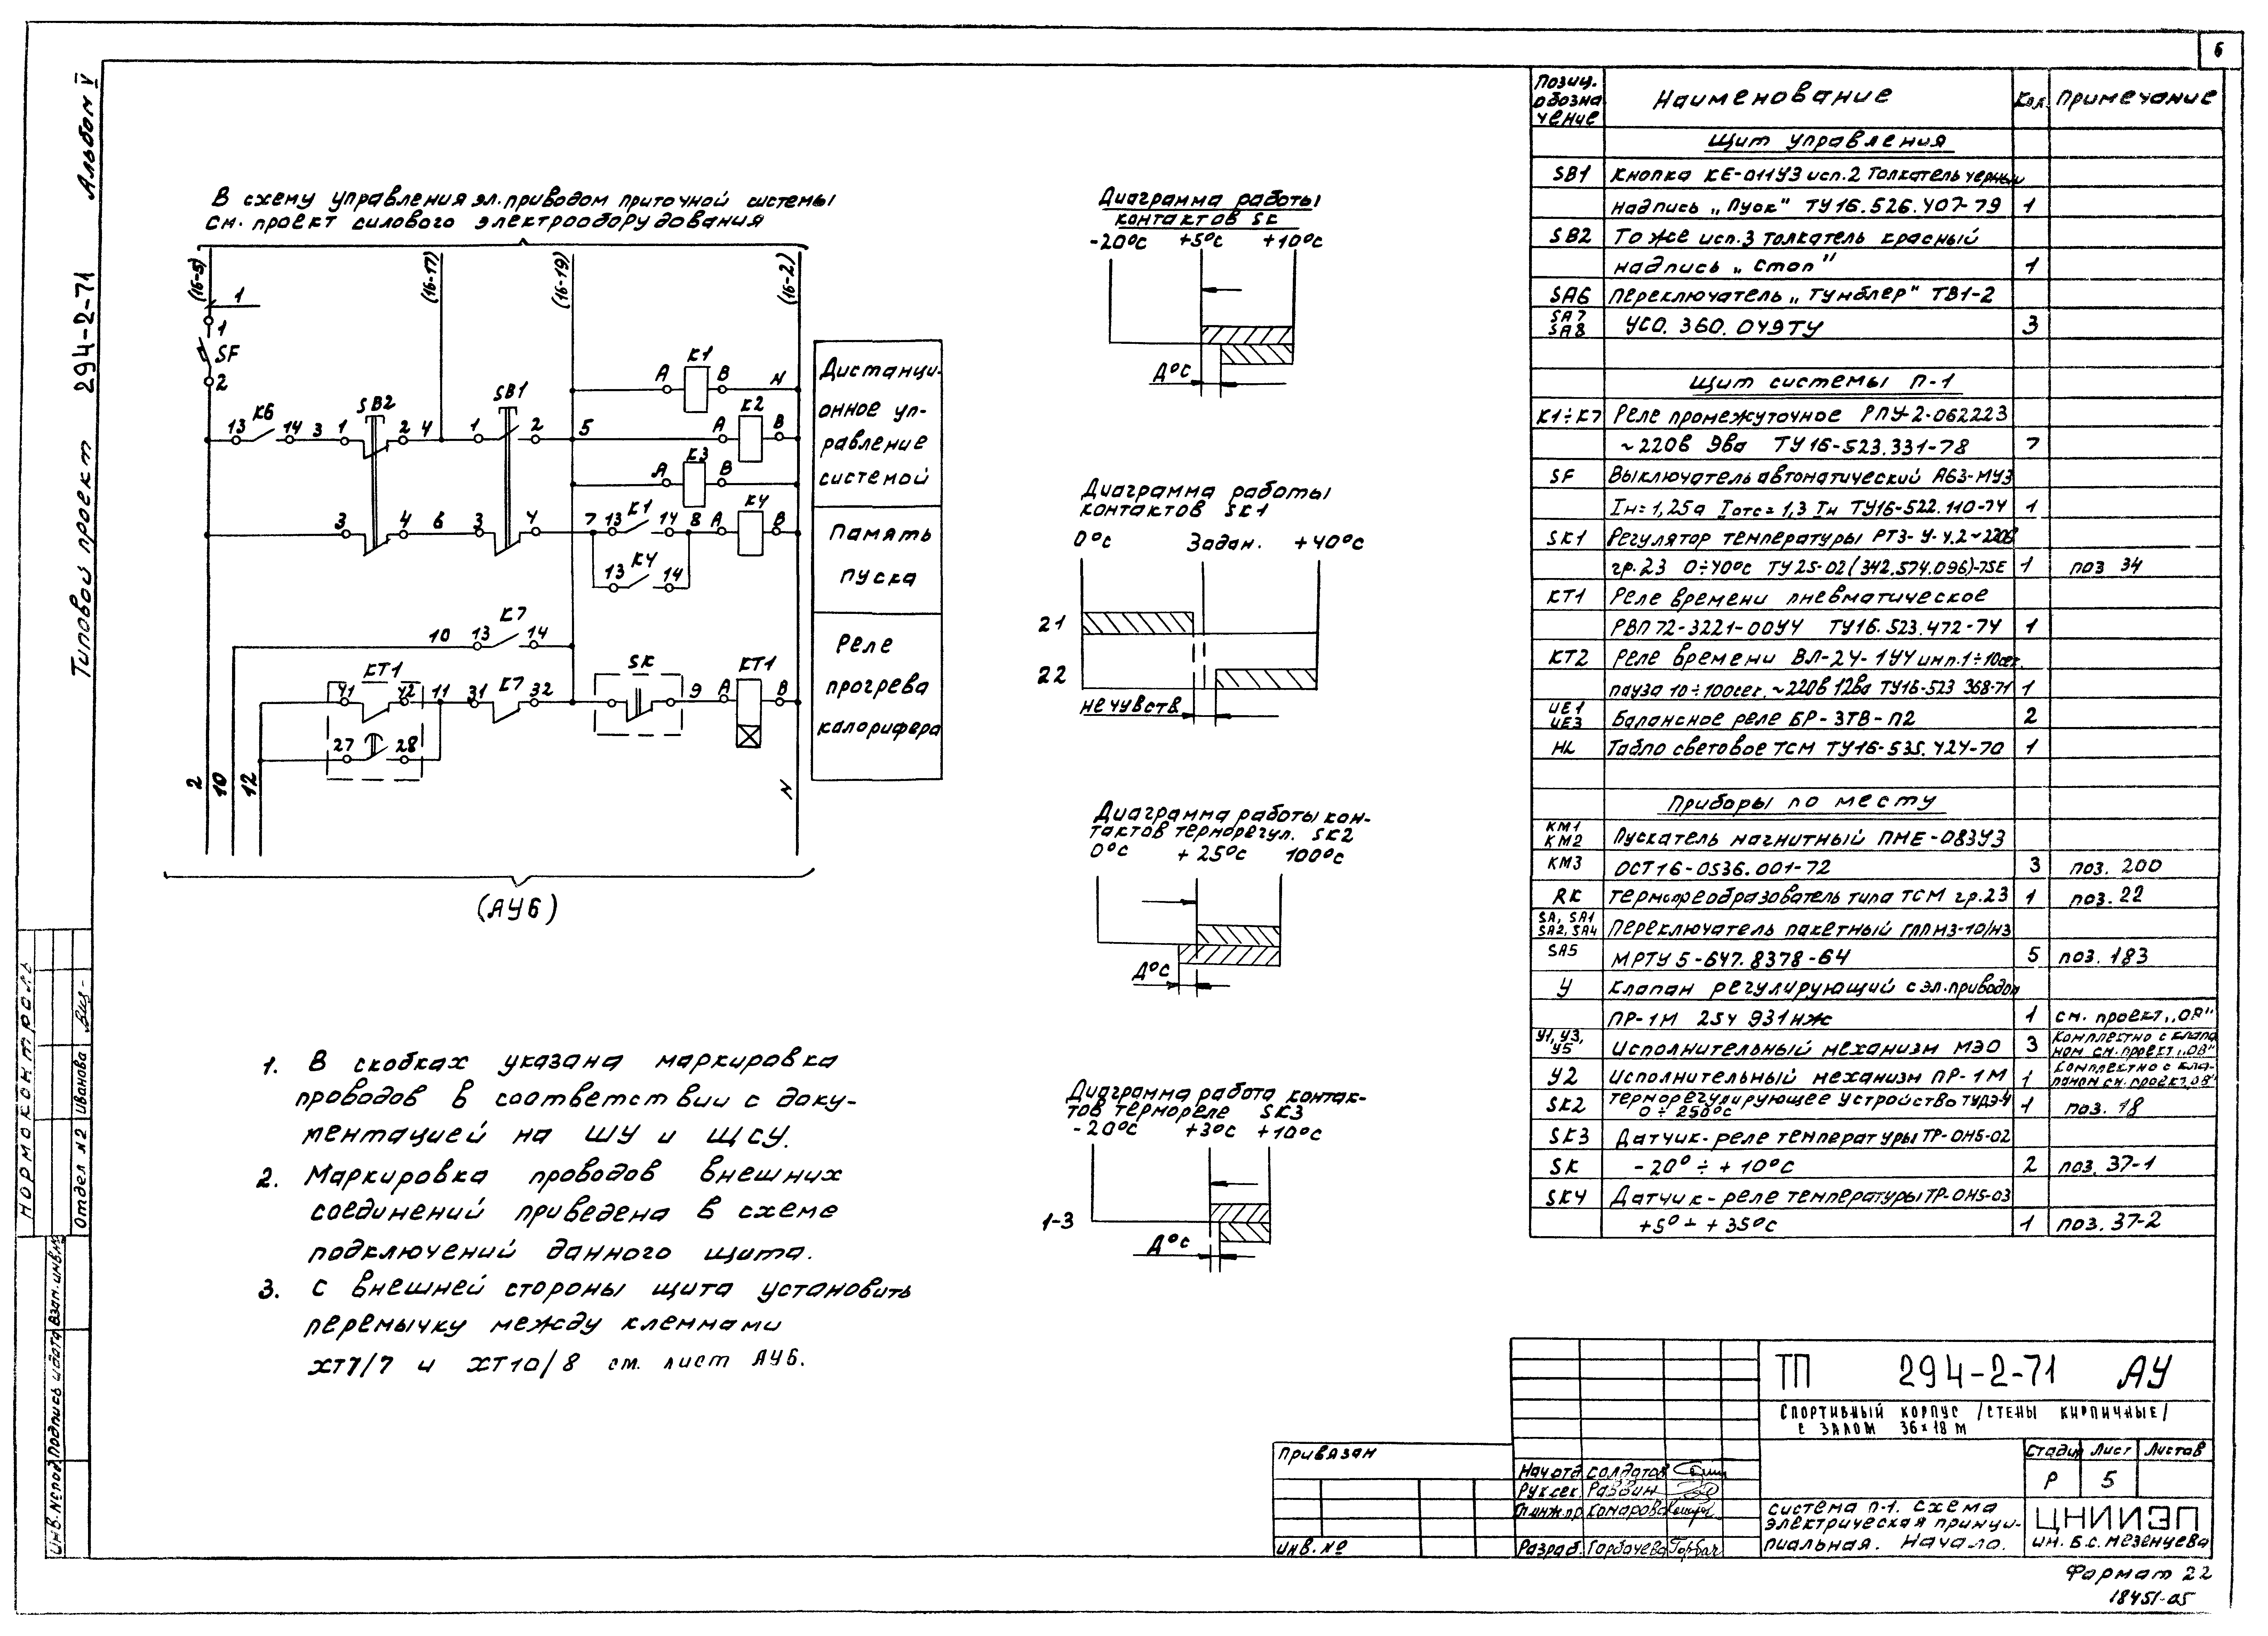 6
Альбом V
Типовой проект 294-2-71
В схему управления эл.приводом приточной системы
см. проект силового электрооборудования
(16-5)
(16-17)
(16-19)
(16-2)
1
1
SF
2
К1
А В N
К2
А В
К3
А В
13 К6 14 3 1 SB2 2 4 1 SB1 2 5
3 4 6 3 4 7 13 К1 14 8 А К4 В
13 К4 14
10 13 К7 14
КТ1
41 42 11 31 К7 32 SK 9 А КТ1 В
27 28
2
10
12
N
(АУ6)
Дистанци-
онное уп-
равление
системой
Память
пуска
Реле
прогрева
калорифера
Диаграмма работы
контактов SK
-20°С +5°С +10°С
Д°С
Диаграмма работы
контактов SK1
0°С Задан. +40°С
21
22
нечувств
Диаграмма работы кон-
тактов терморегул. SK2
0°С +25°С 100°С
Д°С
Диаграмма работа контак-
тов термореле SK3
-20°С +3°С +10°С
1-3
Д°С
1. В скобках указана маркировка
проводов в соответствии с доку-
ментацией на ШУ и ЩСУ.
2. Маркировка проводов внешних
соединений приведена в схеме
подключений данного щита.
3. С внешней стороны щита установить
перемычку между клеммами
ХТ7/7 и ХТ10/8 см. лист АУ6.
Позиц. обозна чение Наименование Кол. Примечание
Щит управления
SB1 Кнопка КЕ-011У3 исп.2 Толкатель черный
надпись „Пуск" ТУ16.526.407-79 1
SB2 То же исп.3 толкатель красный
надпись „Стоп" 1
SA6 Переключатель „Тумблер" ТВ1-2
SA7 SA8 УСО.360.049ТУ 3
Щит системы П-1
К1÷К7 Реле промежуточное РПУ-2-062223
~220в 9ва ТУ16-523.331-78 7
SF Выключатель автоматический А63-МУ3
Iн=1,25а Iотс=1,3 Iн ТУ16-522.110-74 1
SK1 Регулятор температуры РТ3-У-4.2~220в
гр.23 0÷40°С ТУ25-02(342.574.096)-75Е 1 поз 34
КТ1 Реле времени пневматическое
РВП72-3221-00У4 ТУ16.523.472-74 1
КТ2 Реле времени ВЛ-24-1У4 имп.1÷10сек.
пауза 10÷100сек.~220в 12ва ТУ16-523 368-71 1
UE1 UE3 Балансное реле БР-3ТВ-П2 2
HL Табло световое ТСМ ТУ16-535.424-70 1
Приборы по месту
КМ1 КМ2 Пускатель магнитный ПМЕ-083У3
КМ3 ОСТ16-0536.001-72 3 поз. 200
RK Термопреобразователь типа ТСМ гр.23 1 поз.22
SA, SA1 SA2, SA4 Переключатель пакетный ГППМ3-10/Н3
SA5 МРТУ5-647.8378-64 5 поз. 183
У Клапан регулирующий с эл.приводом
ПР-1М 25ч 931нж 1 см. проект „ОВ"
У1, У3, У5 Исполнительный механизм МЭО 3 Комплектно с клапа ном см.проект „ОВ"
У2 Исполнительный механизм ПР-1М 1 Комплектно с кла- паном см.проект „ОВ"
SK2 Терморегулирующее устройство ТУДЭ-4 0÷250°С 1 поз. 18
SK3 Датчик-реле температуры ТР-ОМ5-02
SK -20°÷+10°С 2 поз. 37-1
SK4 Датчик-реле температуры ТР-ОМ5-03
+5°÷+35°С 1 поз. 37-2
Нормоконтроль
Отдел №2 Иванова
Инв.№подл Подпись и дата Взам.инв.№
Привязан
Инв.№
Нач отд Солдатов
Рук сек. Раввин
Гл.инж.пр. Комарова
Разраб. Горбачева
ТП 294-2-71 АУ
Спортивный корпус /стены кирпичные/
с залом 36×18 м
Стадия Лист Листов
Р 5
система П-1. схема
электрическая принци-
пиальная. Начало.
ЦНИИЭП
им. Б.С. Мезенцева
Формат 22
18451-05